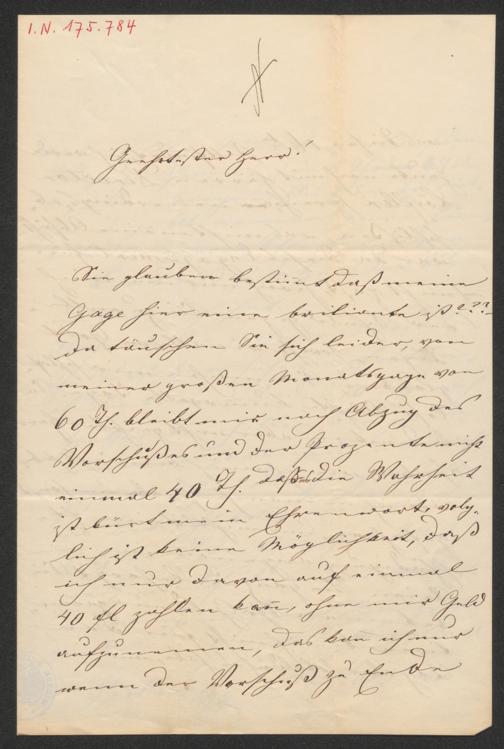 I.N. 175.784
Geehrtester Herr!
Sie glauben bestimt daß meine
Gage hier eine briliante ist???
da täuschen Sie sich leider, von
meiner großen Monatsgage von
60 Th. bleibt mir nach Abzug des
Vorschußes und der Prozente nicht
einmal 40 Th. daß es die Wahrheit
ist bürt mein Ehrenwort, volg-
lich ist keine Möglichkeit, daß
ich nur davon auf einmal
40 fl zahlen kan, ohne mir Geld
aufzunemen, das kan ich nur
wenn der Vorschuß zu Ende